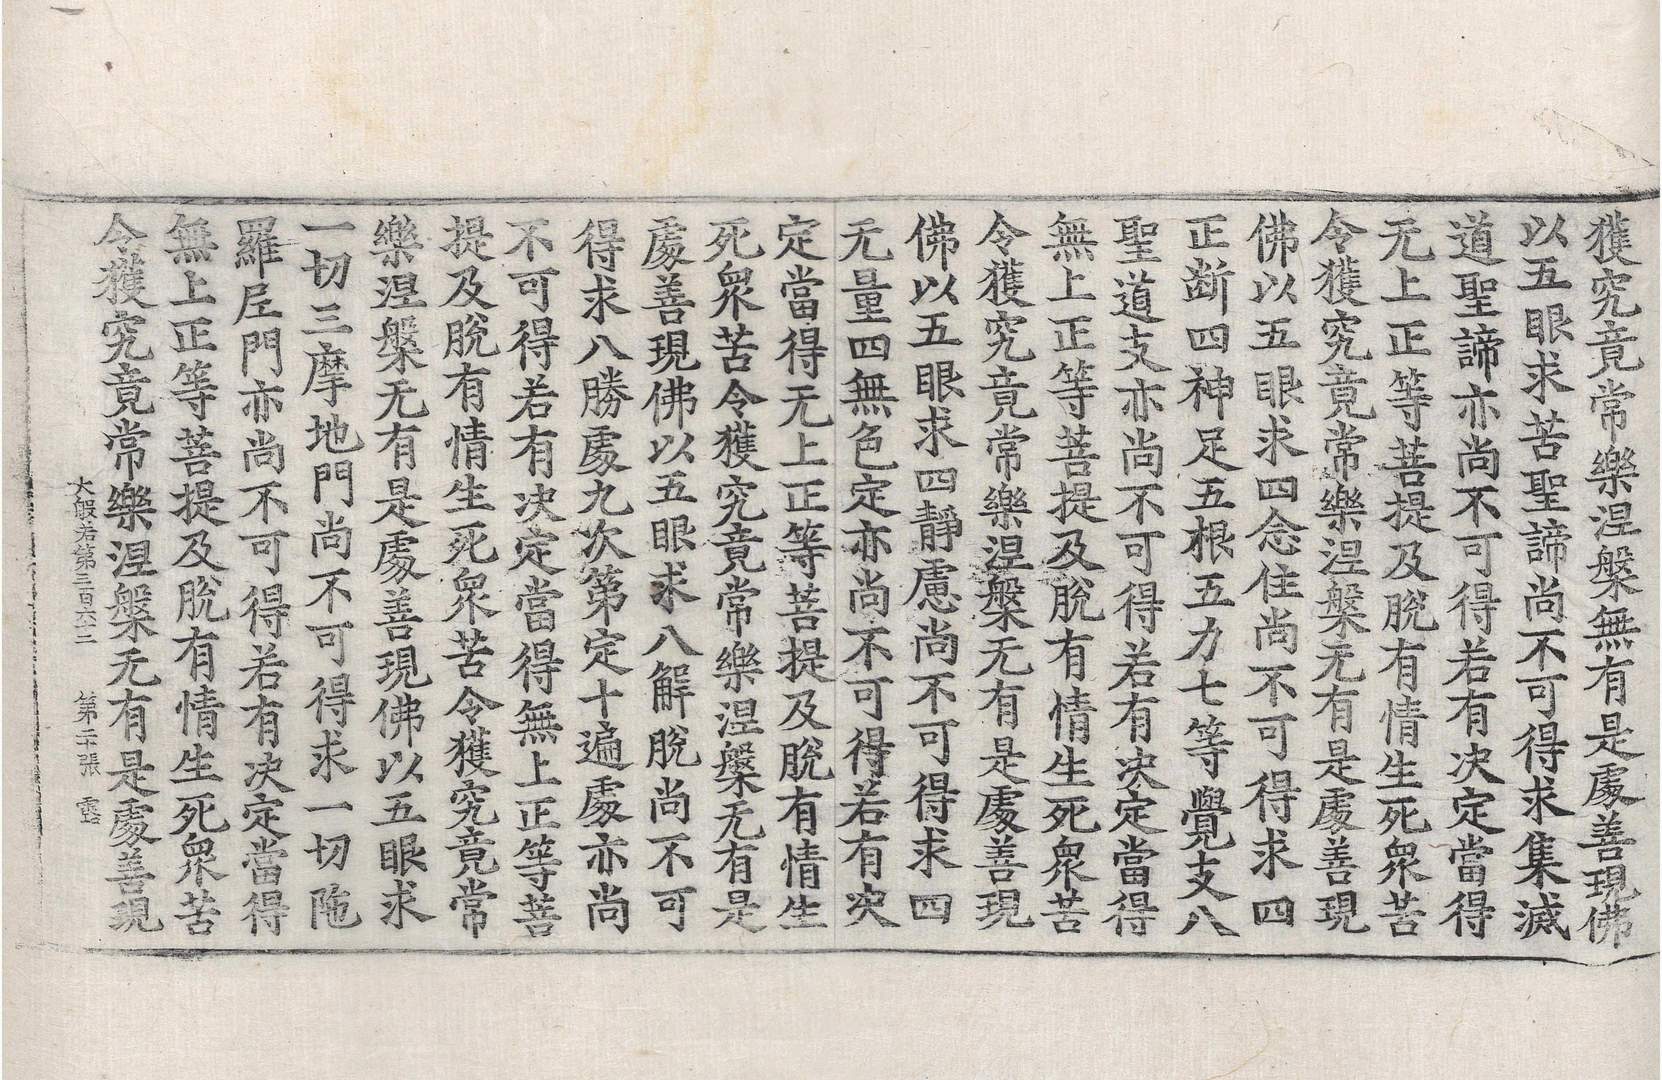 獲究竟常樂涅槃無有是處善現佛
以五眼求苦聖諦尚不可得求集滅
道聖諦亦尚不可得若有决定當得
无上正等菩提及脫有情生死衆苦
令獲究竟常樂涅槃无有是處善現
佛以五眼求四念住尚不可得求四
正断四神足五根五力七等覺支八
聖道支亦尚不可得若有决定當得
無上正等菩提及脫有情生死衆苦
令獲究竟常樂涅槃无有是處善現
佛以五眼求四靜慮尚不可得求四
无量四無色定亦尚不可得若有决
定當得无上正等菩提及脫有情生
死衆苦令獲究竟常樂涅槃无有是
處善現佛以五眼求八解脫尚不可
得求八勝處九次第定十遍處亦尚
不可得若有决定當得無上正等菩
提及脫有情生死衆苦令獲究竟常
樂涅槃无有是處善現佛以五眼求
一切三摩地門尚不可得求一切陁
羅尼門亦尚不可得若有决定當得
無上正等菩提及脫有情生死衆苦
令獲究竟常樂涅槃无有是處善現
大般若第三百六二　第二十張